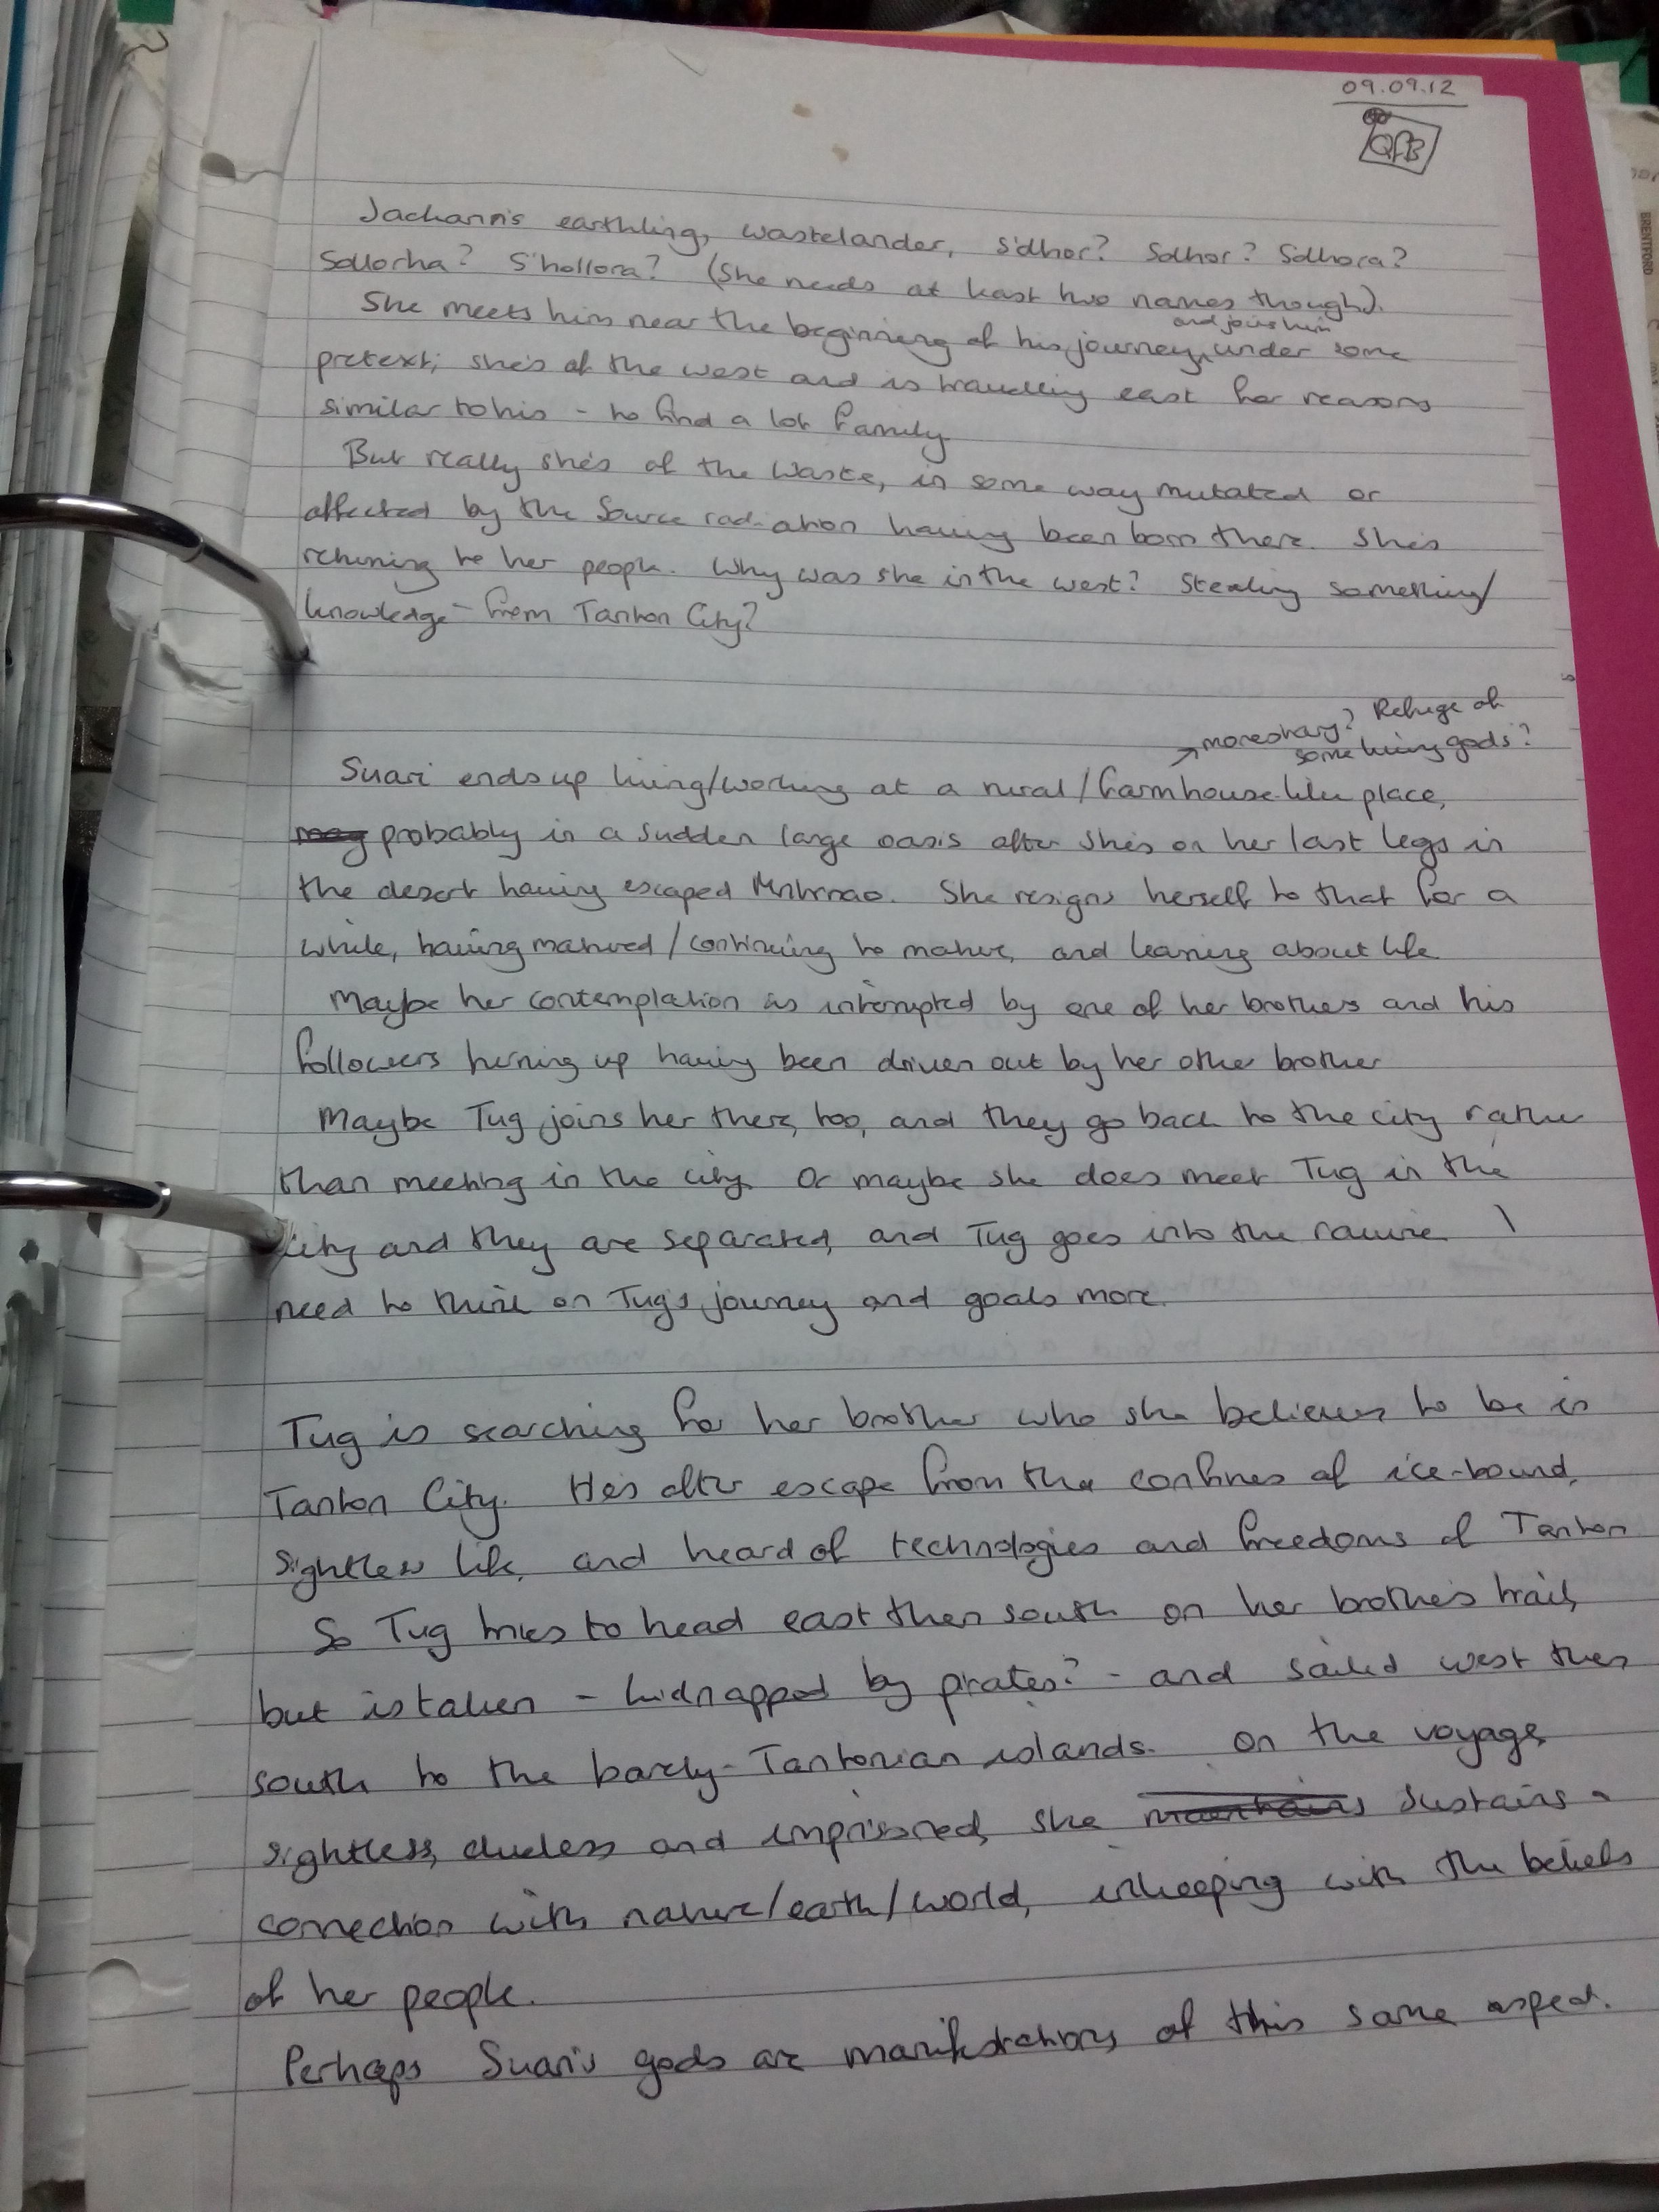 09.09.12
QFB
Jachann's earthling, wastelander, S'dhor? Solhor? Solhora?
Sollorha? S'hollora? (She needs at least two names though).
She meets him near the beginning of his journey, and joins him under some
pretext; she's of the west and is travelling east for reasons
similar to his - to find a lot family
But really she's of the Waste, in some way mutated or
affected by the Source radiation having been born there. She's
returning to her people. Why was she in the west? Stealing something/
knowledge - from Tanton City?
→ monastary? Refuge of
some living gods?
Suari ends up living/working at a rural/farmhouse-like place,
probably in a sudden large oasis after she's on her last legs in
the desert having escaped. She resigns herself to that for a
while, having matured/continuing to mature, and learning about life.
Maybe her contemplation is interrupted by one of her brothers and his
followers turning up having been driven out by her other brother
Maybe Tug joins her there, too, and they go back to the city rather
than meeting in the city. Or maybe she does meet Tug in the
city and they are separated, and Tug goes into the ravine. I
need to think on Tug's journey and goals more.
Tug is searching for her brother who she believes to be in
Tanton City. He's after escape from the confines of ice-bound,
sightless life, and heard of technologies and freedoms of Tanton
So Tug tries to head east then south on her brother's trail,
but is taken - kidnapped by pirates? - and sailed west then
south to the barely-Tantonian islands. On the voyage,
sightless, clueless and imprisoned, she maintains sustains a
connection with nature/earth/world, inkeeping with the beliefs
of her people.
Perhaps Suari's gods are manifestations of this same aspect.